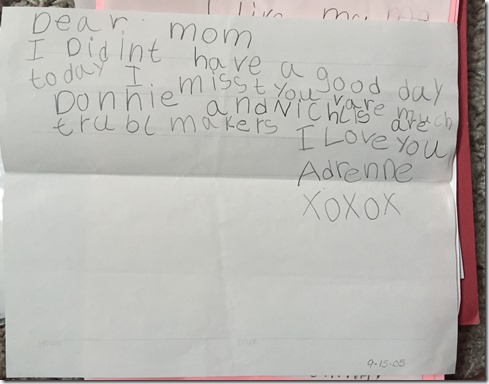 Dear mom
I Didint have a good day
today I misst you vare much
Donnie and Nichlis are
trubl makers
I Love you
Adrenne
XOXOX
9-15-05